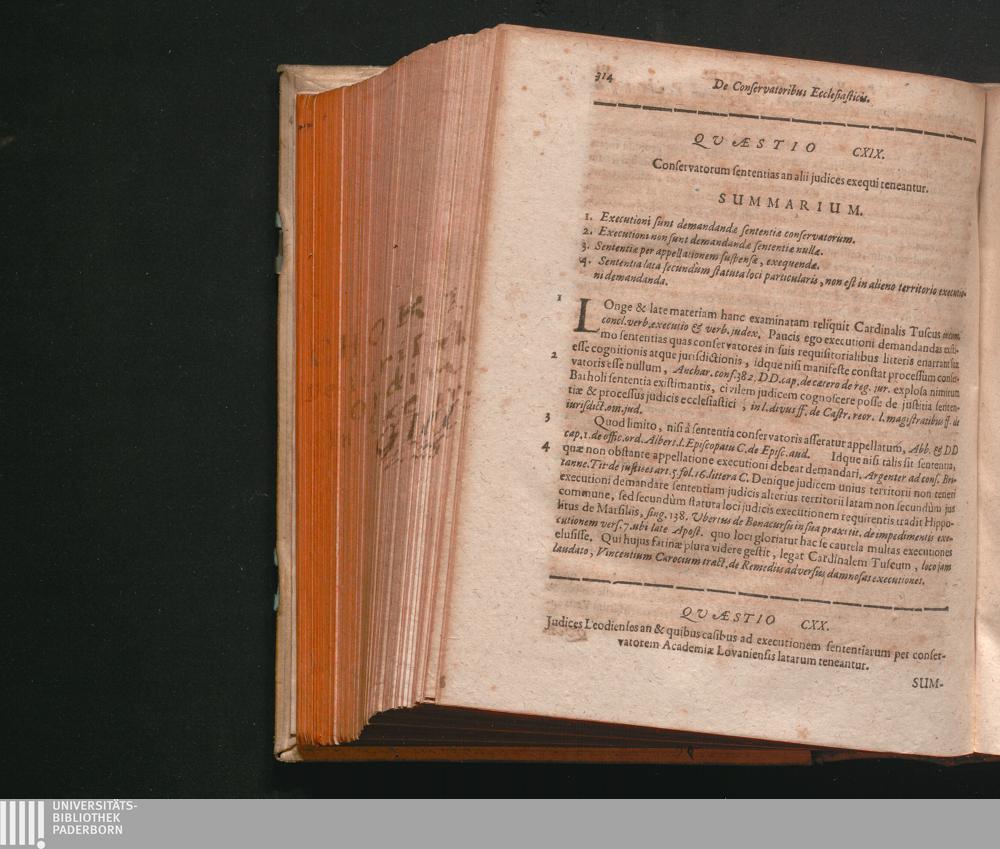 314
De Conſervatoribus Eccleſiaſticis.
QVÆSTIO CXIX.
Conſervatorum ſententias an alii judices exequi teneantur.
SUMMARIUM.
1. Executioni ſunt demandandæ ſententiæ conſervatorum.
2. Executioni non ſunt demandandæ ſententiæ nullæ.
3. Sententiæ per appellationem ſuſpenſæ, exequendæ.
4. Sententia lata ſecundum ſtatuta loci particularis, non eſt in alieno territorio executio-
ni demandanda.
1 LOnge & late materiam hanc examinatam reliquit Cardinalis Tuſcus
concl. verb. executio & verb. judex. Paucis ego executioni demandandas exiſti-
mo ſententias quas conſervatores in ſuis requiſitorialibus litteris enarrant ſuæ
2 eſſe cognitionis atque jurisdictionis, idque niſi manifeſte conſtat proceſſum conſer-
vatoris eſſe nullum, Anchar. conſ. 382. DD. cap. de cætero de reg. jur. exploſa nimirum
Batholi ſententia exiſtimantis, civilem judicem cognoſcere poſſe de juſtitia ſenten-
tiæ & proceſſus judicis eccleſiaſtici, in l. divus ff. de Caſtr. reor. l. magiſtratibus ff. de
iurisdict. om. jud.
3 Quod limito, niſi à ſententia conſervatoris aſſeratur appellatum, Abb. & DD
cap. 1. de offic. ord. Albert. l. Epiſcopatu C. de Epiſc. aud. Idque niſi talis ſit ſententia,
4 quæ non obſtante appellatione executioni debeat demandari, Argenter ad conſ. Bri-
tanne. Tit. de juſtices art. 5. fol. 16. littera C. Denique judicem unius territorii non teneri
executioni demandare ſententiam judicis alterius territorii latam non ſecundùm jus
commune, ſed ſecundùm ſtatuta loci judicis executionem requirentis tradit Hippo-
litus de Marſiliis, ſing. 138. Ubertus de Bonacurſu in ſua praxi tit. de impedimentis exe-
cutionem verſ. 7. ubi late Apoſt. quo loci gloriatur hac ſe cautela multas executiones
eluſiſſe. Qui hujus farinæ plura videre geſtit, legat Cardinalem Tuſcum, loco jam
laudato, Vincentium Carocium tract. de Remediis adverſus damnoſas executiones.
QVÆSTIO CXX.
Judices Leodienſes an & quibus caſibus ad executionem ſententiarum per conſer-
vatorem Academiæ Lovanienſis latarum teneantur.
SUM-
UNIVERSITÄTS-
BIBLIOTHEK
PADERBORN